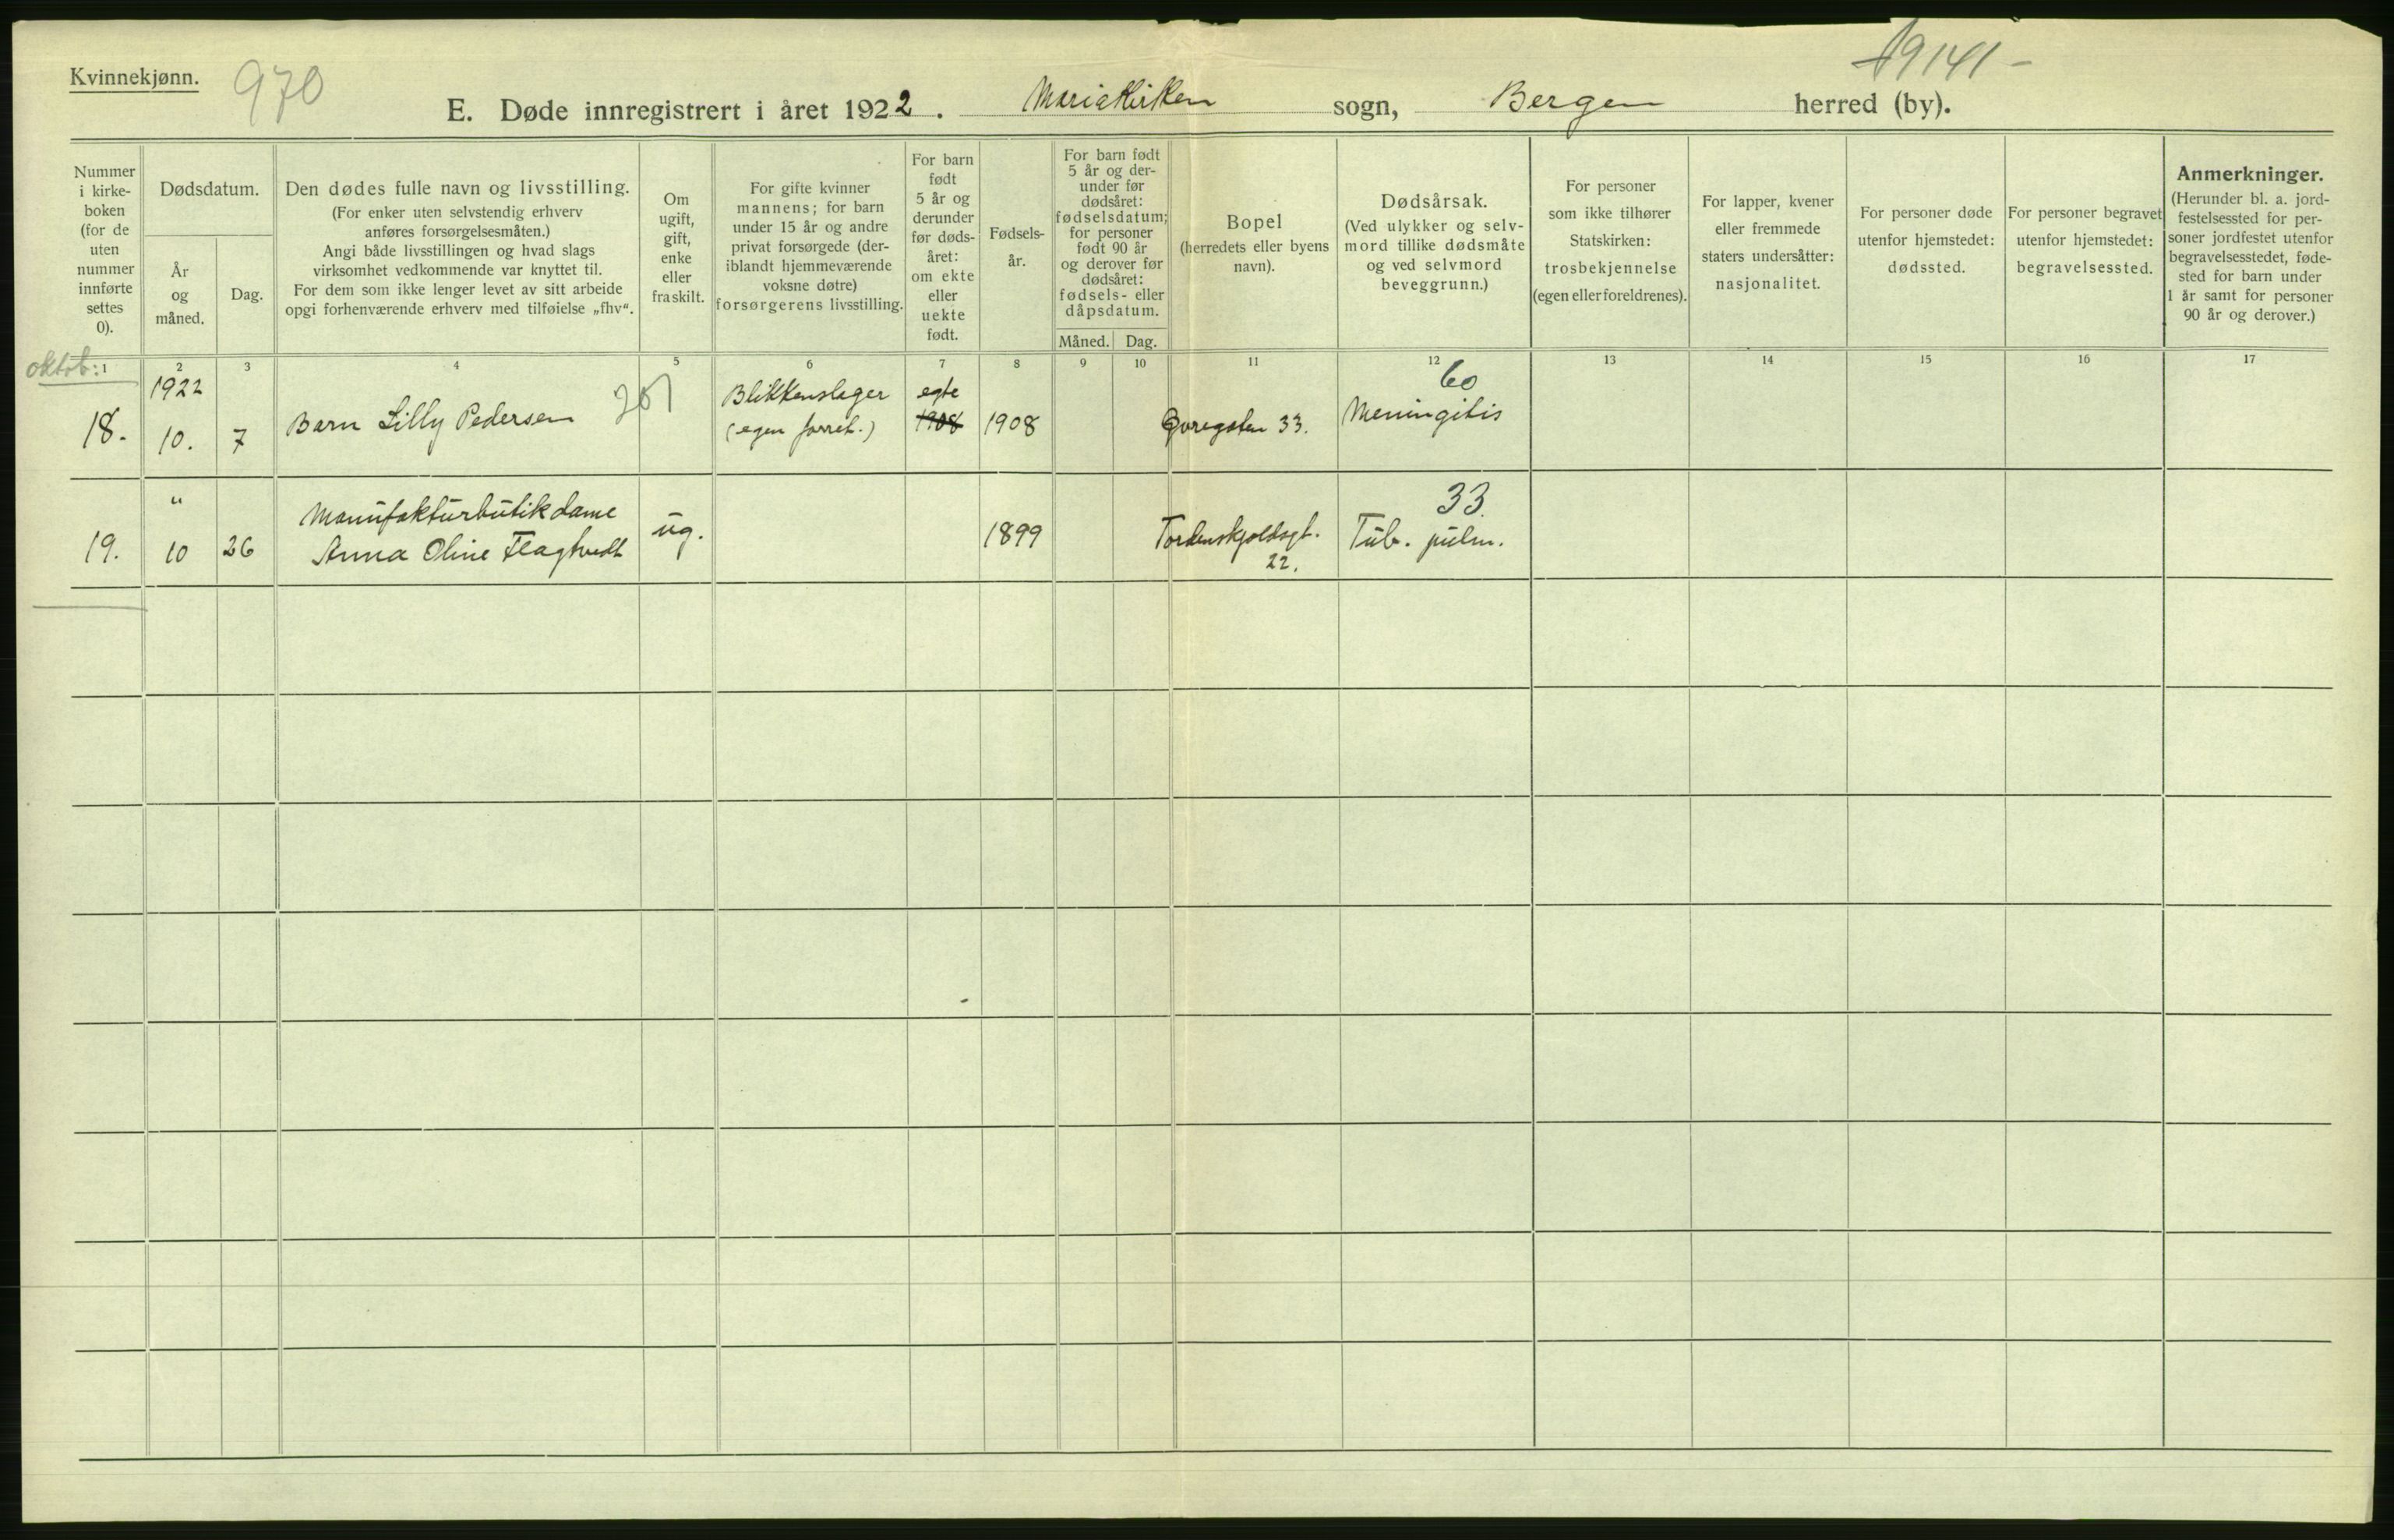 Kvinnekjønn.
970
19141 -
E. Døde innregistrert i året 1922. Mariakirken sogn, Bergen herred (by).
Nummer
i kirke-
boken
(for de
uten
nummer
innførte
settes
0).
Dødsdatum.
År
og
måned.
Dag.
Den dødes fulle navn og livsstilling.
(For enker uten selvstendig erhverv
anføres forsørgelsesmåten.)
Angi både livsstillingen og hvad slags
virksomhet vedkommende var knyttet til.
For dem som ikke lenger levet av sitt arbeide
opgi forhenværende erhverv med tilføielse „fhv“.
Om
ugift,
gift,
enke
eller
fraskilt.
For gifte kvinner
mannens; for barn
under 15 år og andre
privat forsørgede (der-
iblandt hjemmeværende
voksne døtre)
forsørgerens livsstilling.
For barn
født
5 år og
derunder
før døds-
året:
om ekte
eller
uekte
født.
Fødsels-
år.
For barn født
5 år og der-
under før
dødsåret:
fødselsdatum;
for personer
født 90 år
og derover før
dødsåret:
fødsels- eller
dåpsdatum.
Måned. Dag.
Bopel
(herredets eller byens
navn).
Dødsårsak.
(Ved ulykker og selv-
mord tillike dødsmåte
og ved selvmord
beveggrunn.)
For personer
som ikke tilhører
Statskirken:
trosbekjennelse
(egen eller foreldrenes).
For lapper, kvener
eller fremmede
staters undersåtter:
nasjonalitet.
For personer døde
utenfor hjemstedet:
dødssted.
For personer begravet
utenfor hjemstedet:
begravelsessted.
Anmerkninger.
(Herunder bl. a. jord-
festelsessted for per-
soner jordfestet utenfor
begravelsesstedet, føde-
sted for barn under
1 år samt for personer
90 år og derover.)
oktob: 1 2 3 4 5 6 7 8 9 10 11 12 13 14 15 16 17
1922
18. 10. 7
Barn Lilly Pedersen
Blikkenslager
(egen forret.)
egte
1908
1908
33.
60
Meningitis
"
19. 10 26
Manufakturbutikdame
Anna Oline Flaghvedt
ug.
1899
Tordenskjoldsgt.
22.
33.
Tub. pulm.